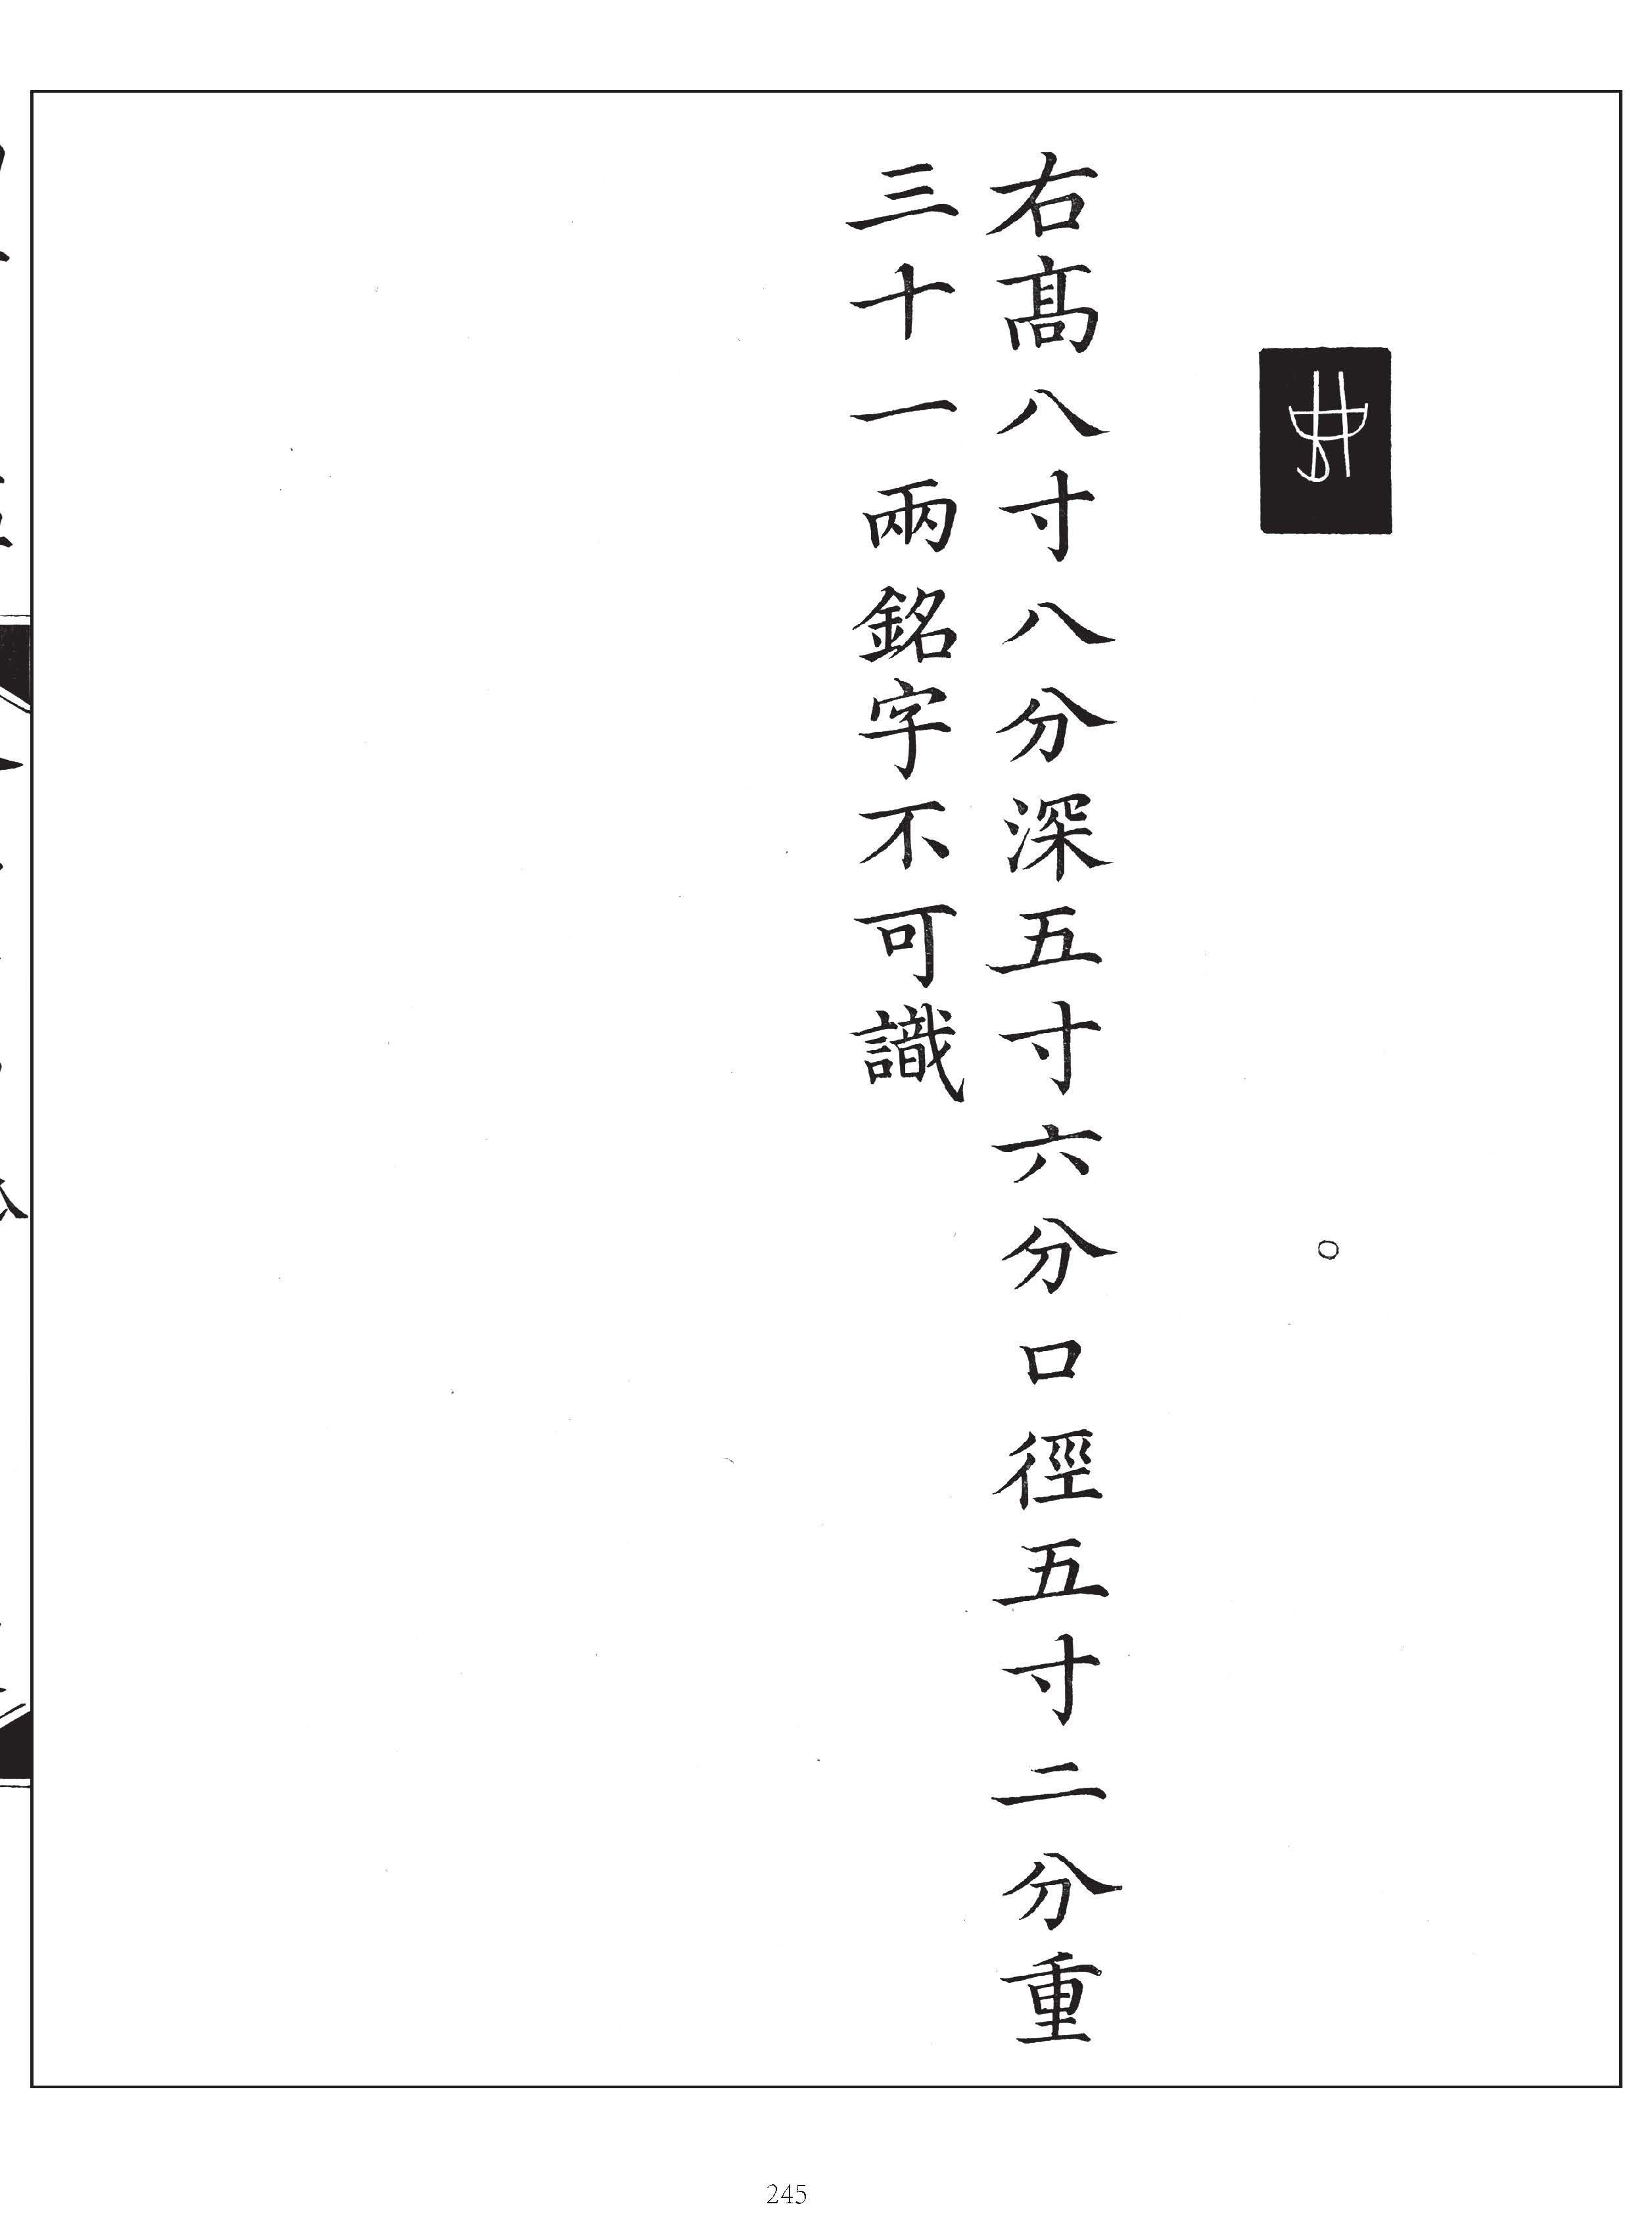 右髙八寸八分深五寸六分口徑五寸二分重
三十一兩銘字不可識
245